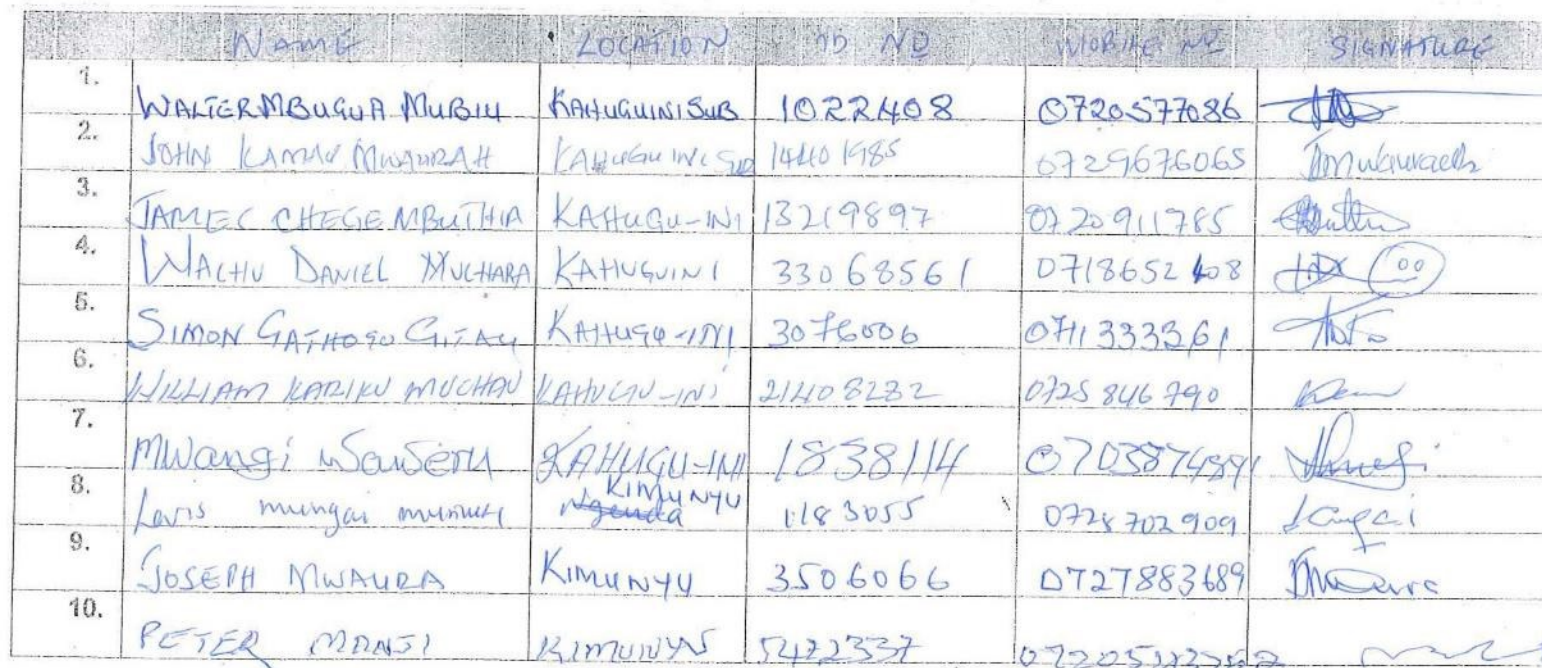 NAME LOCATION ID NO MOBILE NO SIGNATURE
1. WALTER MBUGUA MUBIU KAHUGUINI SUB 1022408 0720577086
2. JOHN KAMAU MWAURAH KAHUGUINI SUB 14401985 0729676065 Jmwaurah
3. JAMES CHEGE MBUTHIA KAHUGU-INI 13219897 0720911785
4. WACHU DANIEL MUCHARA KAHUGUINI 33068561 0718652408
5. SIMON GATHOGO GITAU KAHUGU-INI 3076006 0711333361
6. WILLIAM KARIKU MUCHAU KAHUGU-INI 21408232 0725846790
7. Mwangi KAHUGU-INI 1838114
8. mungai KIMUNYU 1183055 0728702909
9. JOSEPH MWAURA KIMUNYU 3506066 0727883689
10. PETER KIMUNYU 5472337